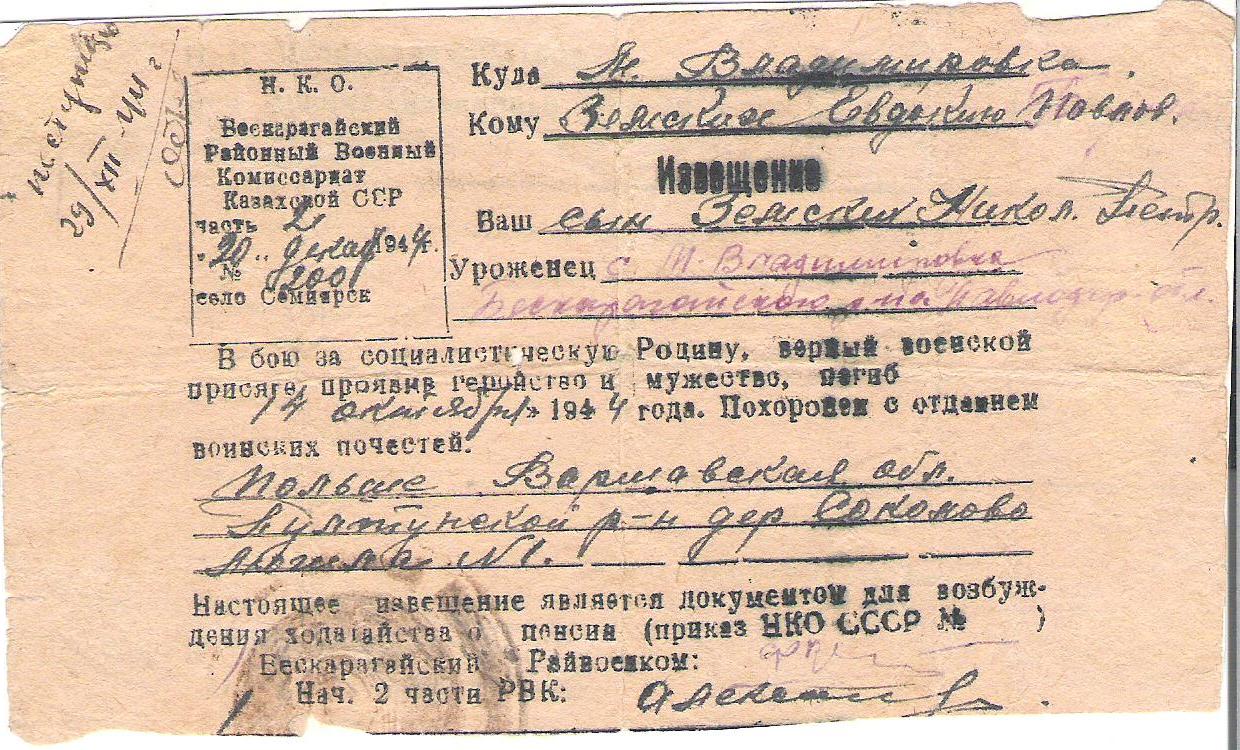 поступило
29/XII-44 г
Н. К. О.
Бескарагайский
Районный Военный
Комиссариат
Казахской ССР
часть 2
„20„ декаб 1944г.
№ 200
село Семиярск
Куда М. Владимировка.
Кому Земских Евдокию Павлов.
Извещение
Ваш сын Земских Никол. Петр.
Уроженец с М-Владимировка
Бескарагайского р-на Павлодар. обл.
В бою за социалистическую Родину, верный военской
присяге, проявив геройство и мужество, погиб
14 октября» 1944 года. Похоронен с отданием
воинских почестей.
Польше Варшавская обл.
Пултунской р-н дер Сокомово
Могила N1.
Настоящее извещение является документом для возбуж-
дения ходатайства о пенсии (приказ НКО СССР № )
Бескарагайский Райвоенком:
Нач. 2 части РВК: